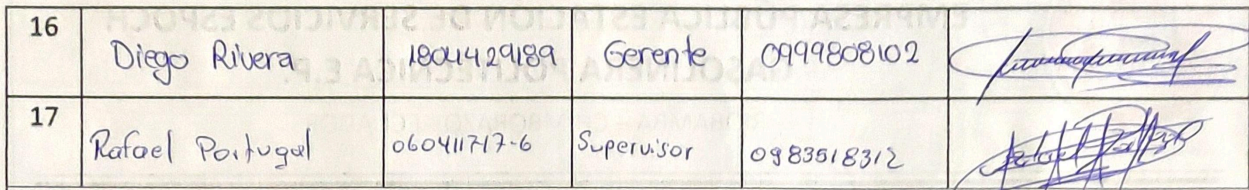 16 Diego Rivera 1804429189 Gerente 0999808102
17 Rafael Portugal 060411717-6 Supervisor 0983518312